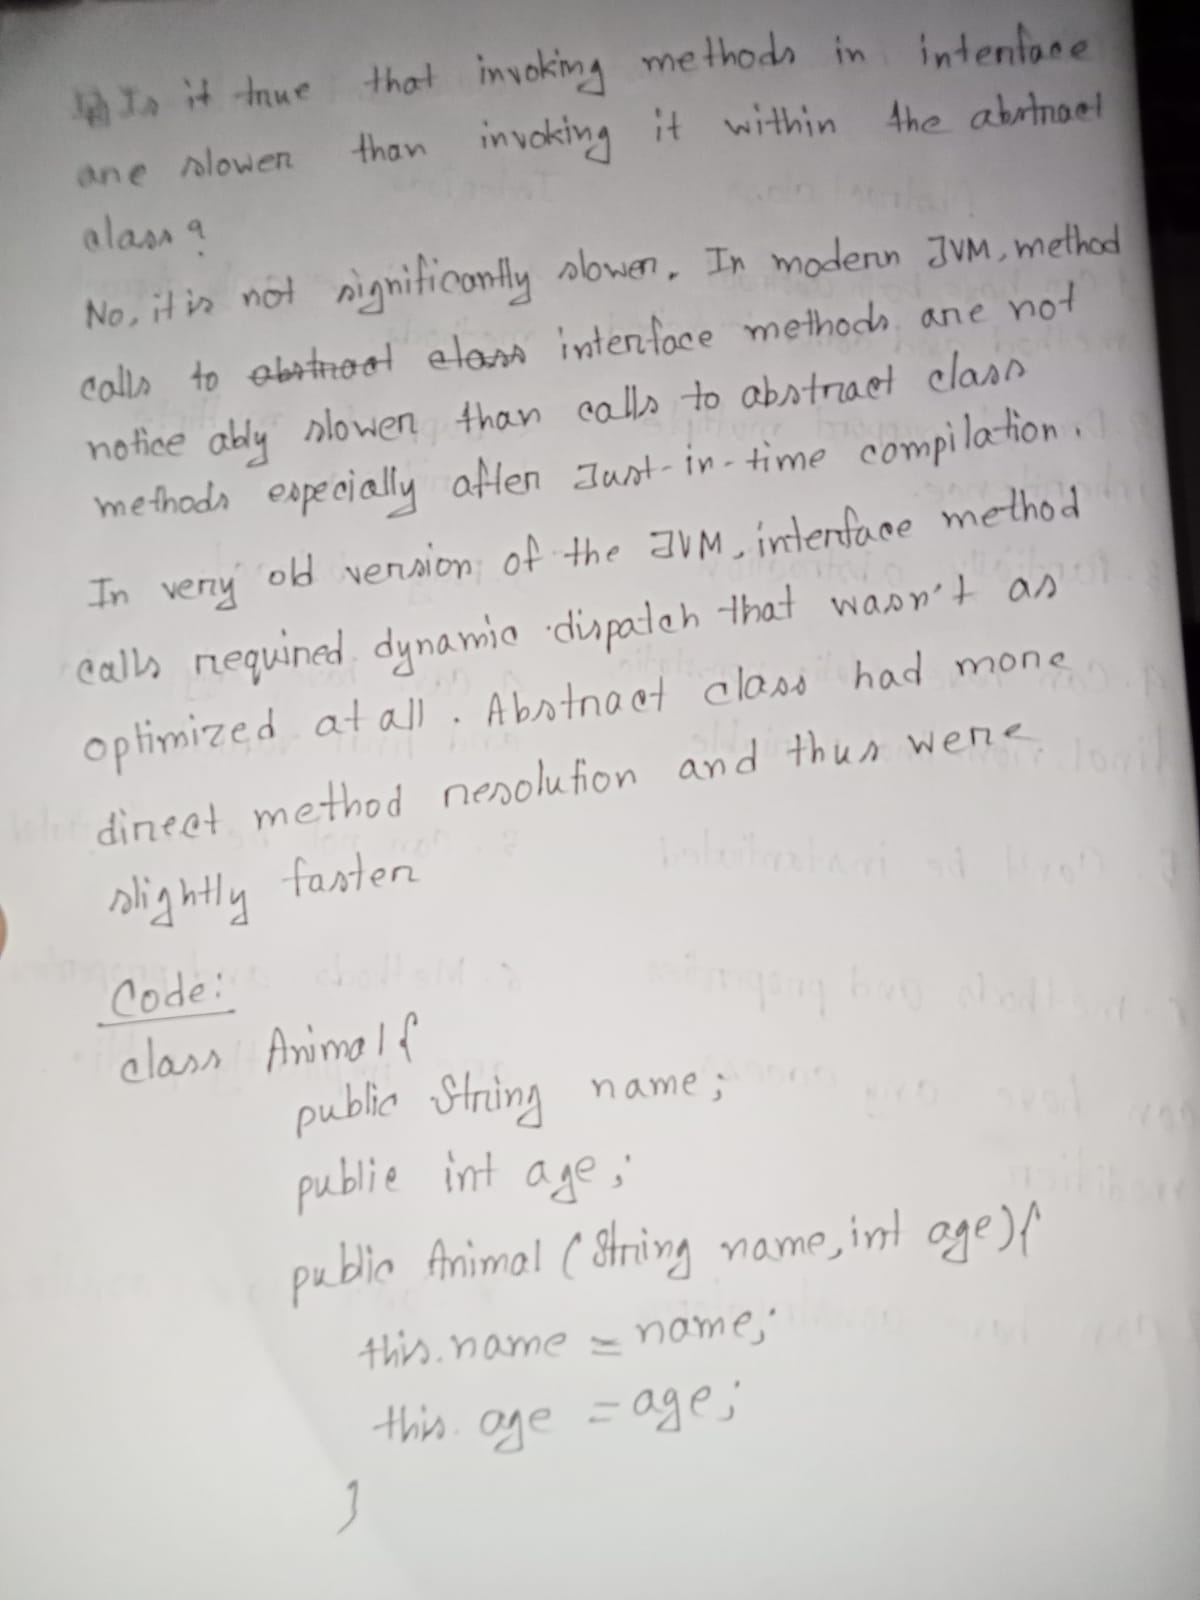 Is it true that invoking methods in interface
are slower than invoking it within the abstract
class?
No, it is not significantly slower. In modern JVM, method
calls to abstract class interface methods are not
notice ably slower than calls to abstract class
methods especially after Just-in-time compilation.
In very old version of the JVM, interface method
calls required dynamic dispatch that wasn't as
optimized at all. Abstract class had more
direct method resolution and thus were
slightly faster
Code:
class Animal{
public String name;
public int age;
public Animal (String name, int age){
this.name = name;
this.age = age;
}